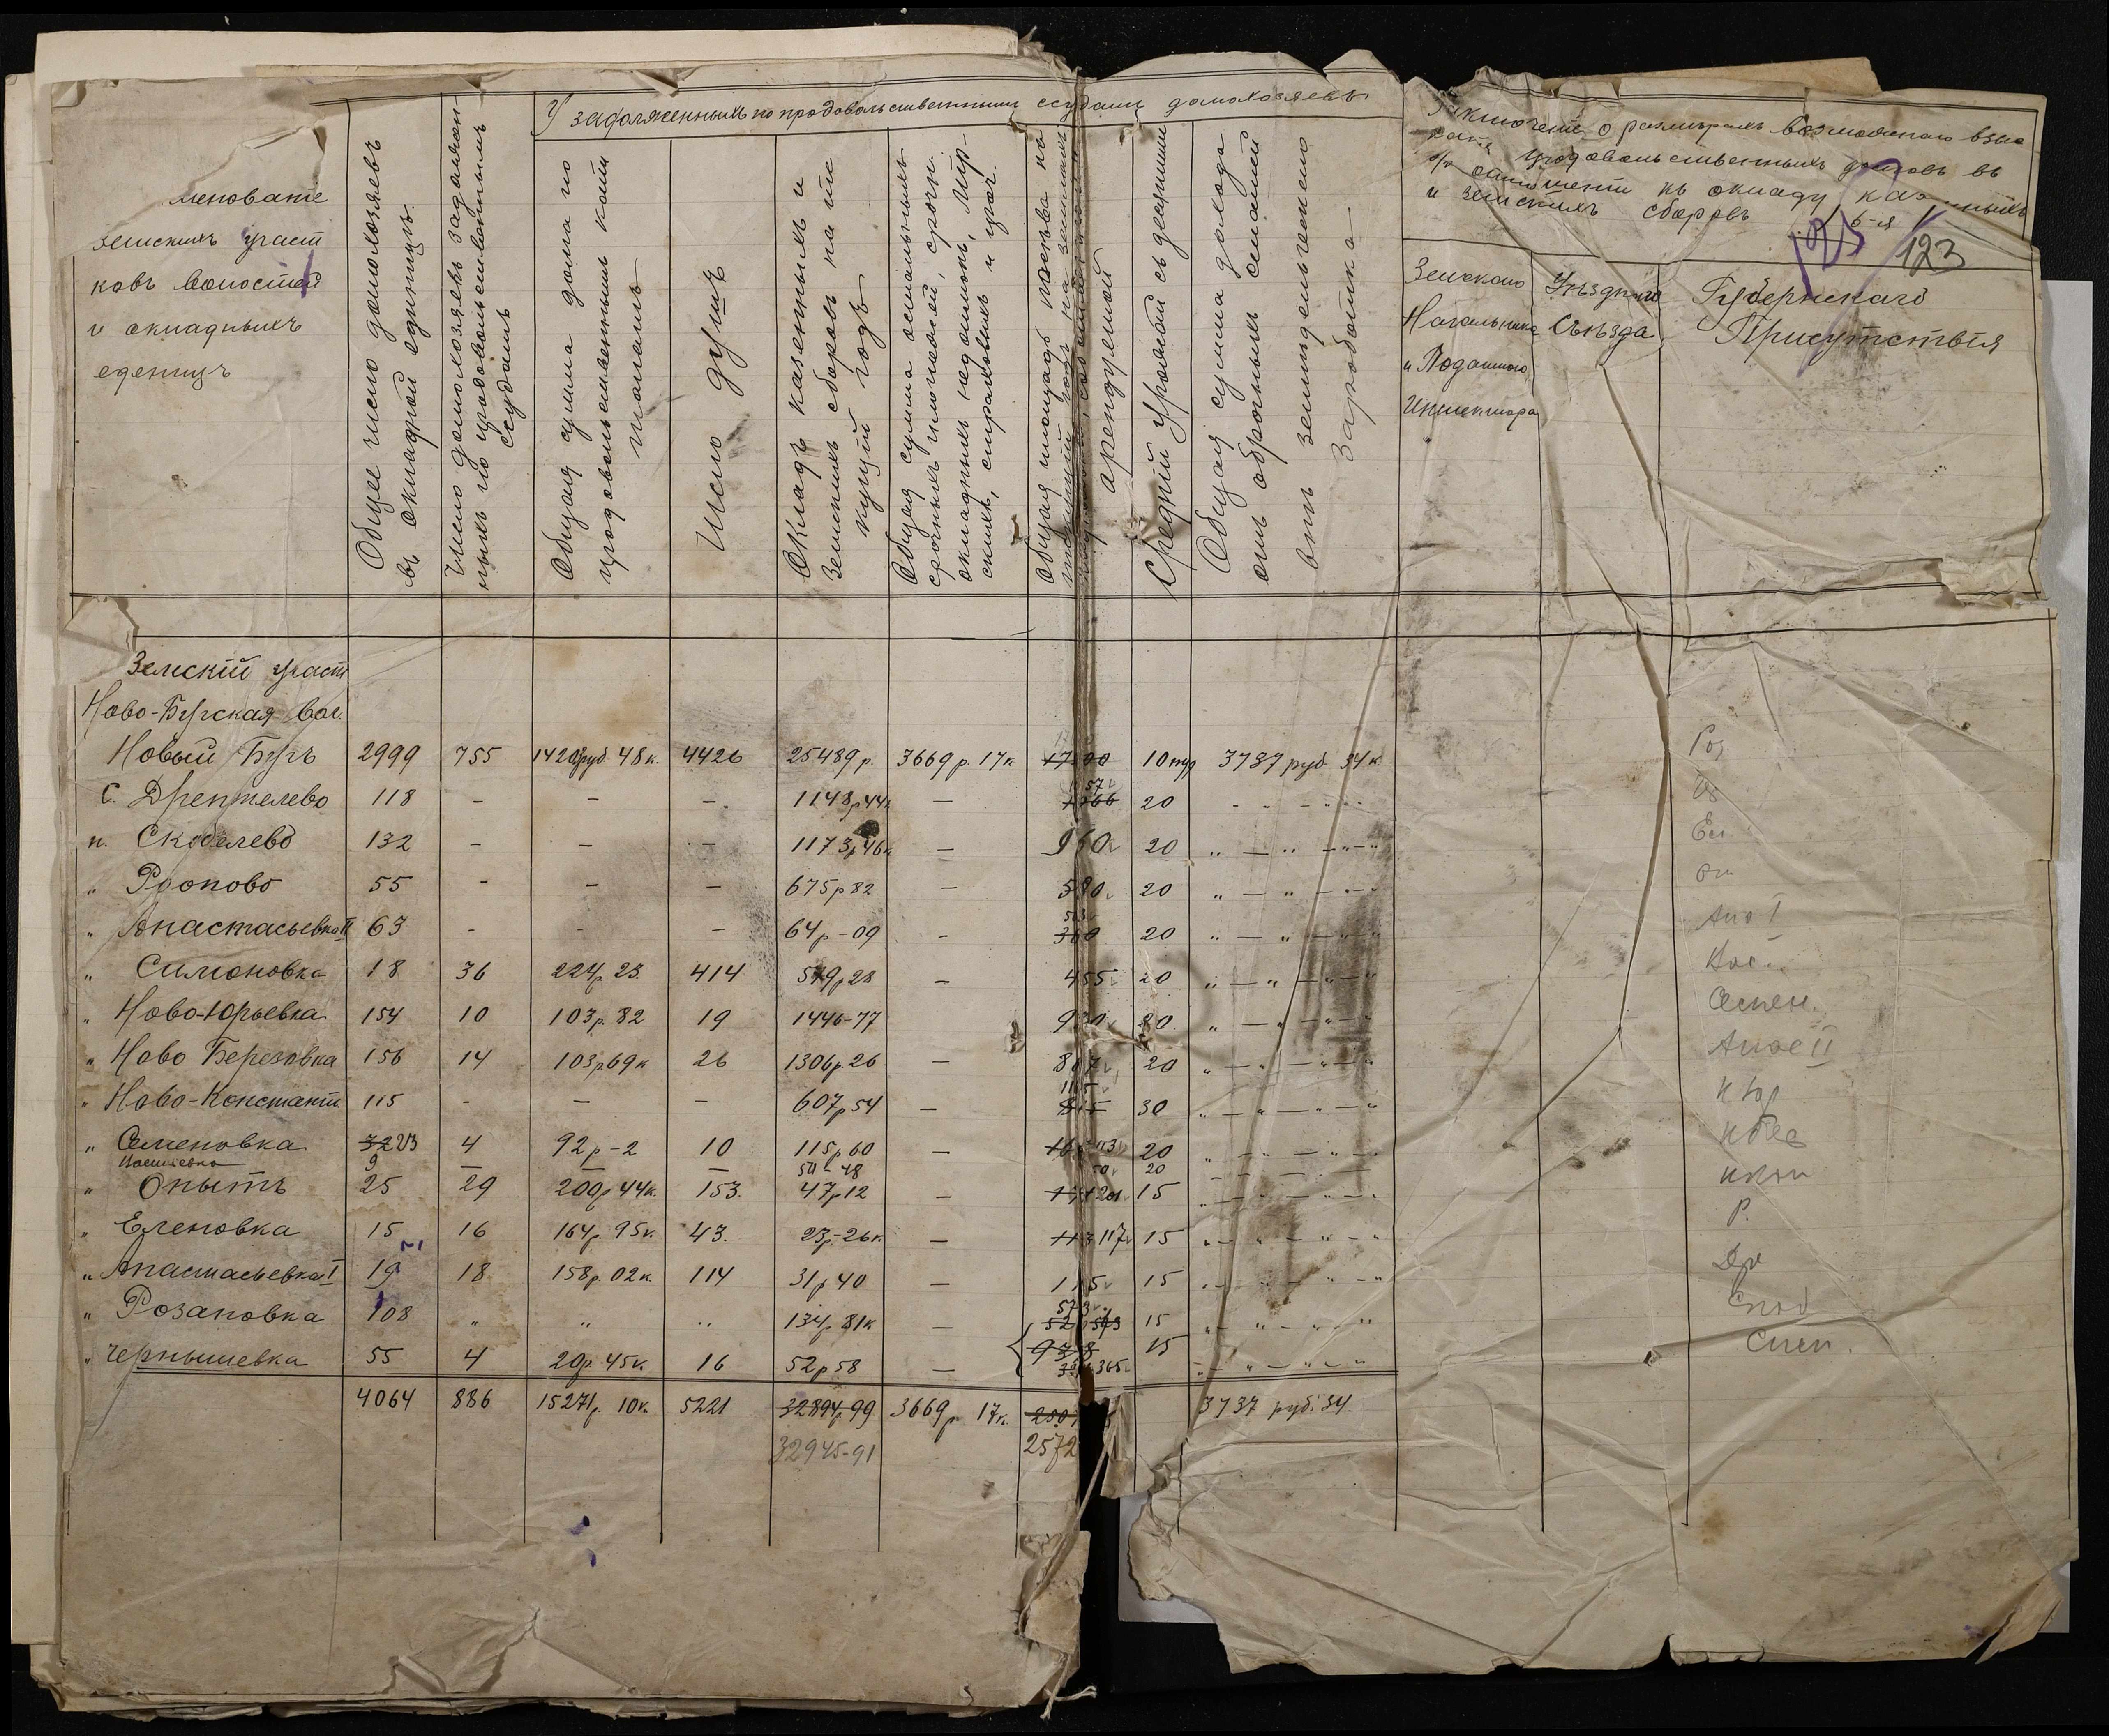 менованіе
земскихъ участ
ковъ волостей
и окладныхъ
единицъ
Общее число домохозяевъ
въ окладной единицѣ.
Число домохозяевъ задолжен
ныхъ по продовольственнымъ
ссудамъ
У задолженныхъ по продовольственнымъ ссудамъ домохозяевъ
Общая сумма долга по
продовольственнымъ
Число душъ
Окладъ казенныхъ и
Земскихъ сборовъ на те
кущій годъ
Общая сумма остальныхъ
срочныхъ
окладныхъ недоимокъ, Мір-
скихъ, страховыхъ и проч.
Общая площадь посѣва въ
арендуемой
Средній урожай съ десятины
Общая сумма дохода
отъ оброчныхъ статей
внѣ земледѣльческаго
заработка
о размѣрахъ возможнаго взыс
продовольственныхъ долговъ въ
къ окладу казенныхъ
и земскихъ сборовъ
123
Земскаго
Начальника
и Податного
Инспектора
Уѣзднаго
Съѣзда
Губернскаго
Присутствія
Земскій участ
Ново-Бугская вол.
Новый Бугъ 2999 755 14203руб 48к. 4426 25489р. 3669р. 17к 17500 10пуд 3737 руб 34к
С. Дрентелево 118 - - - 1148р44к — 57 1266 20
п. Скобелево 132 - - - 1173р46к — 960 20 „ — „ — „ — „
„ Роопово 55 - - - 675р82 — 580 20 „ — „
„ Анастасьевка II 63 - - - 64р-09 - 503 360 20 „ — „ — „
„ Симоновка 18 36 224р23. 414 549р28 — 455 20 „ — „ — „ — „
„ Ново-Юрьевка 154 10 103р. 82 19 1446-77 930 20 „ — „ — „ — „
„ Ново Березовка 156 14 103р69к 26 1306р26 — 807 20 „ — „ — „ — „
„ Ново-Константи 115 - - - 607р54 — 815 30 „ — „ — „ — „
„ Семеновка 32 23 4 92р-2 10 115р60 — 113 20
9 — — — 50 - 48 50 20
„ Опытъ 25 29 200р44к. 153. 47р12 — 120 15
„ Еленовка 15 16 164р. 95к. 43. 23р-26к — 113 117 15
„ Анастасьевка I 19 18 158р. 02к. 114 31р40 — 115 15
„ Розановка 108 „ „ „ 134р. 81к — 573 15
„ Чернышевка 55 4 20р. 45к. 16 52р58 — 938 365 15
4064 886 15271р. 10к. 5221 32894р99 3669р. 17к. 3737 руб. 34.
32945-91 2572
Роз
Ел
Оп
Ана I
Семен.
Анас II
Н Юр
Н Бе
Р.
Др
Скоб